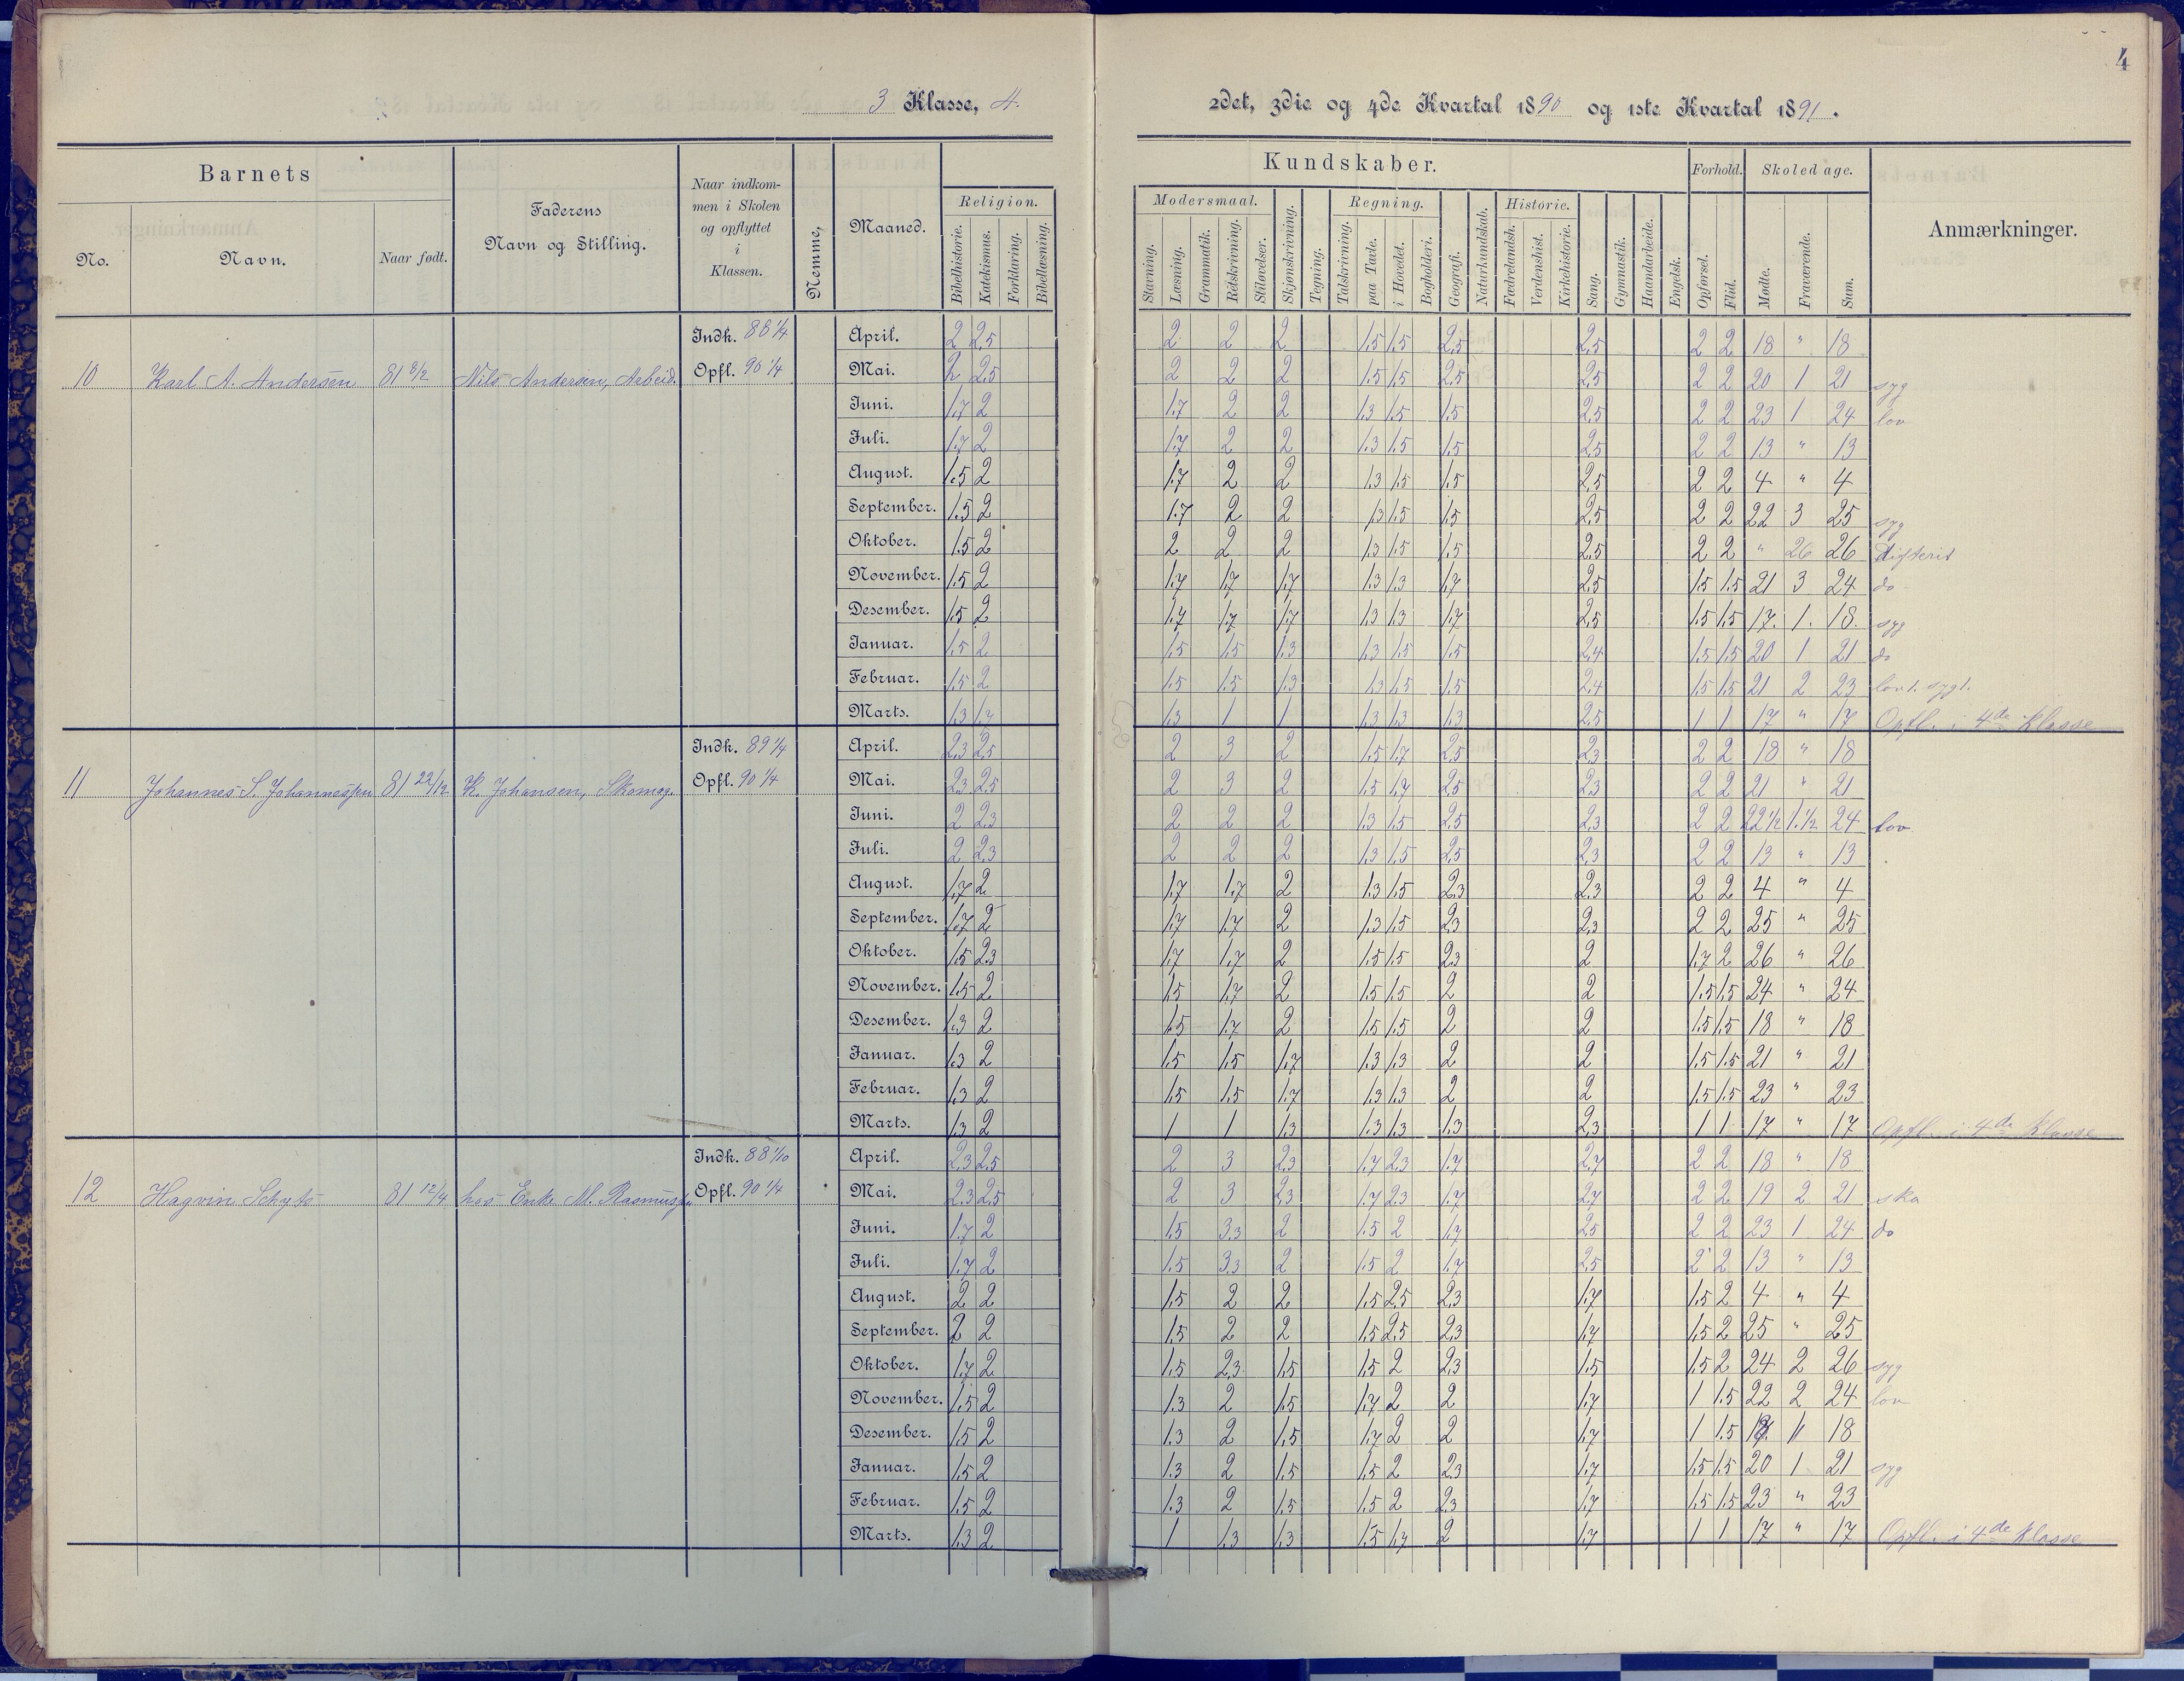 4
3 Klasse, A.
2det, 3die og 4de Kvartal 1890 og 1ste Kvartal 1891.
Barnets
Faderens Navn og Stilling.
Naar indkommen i Skolen og opflyttet i Klassen.
Nemme,
Maaned.
Kundskaber.
Forhold.
Skoledage.
Anmærkninger.
No.
Navn.
Naar født.
Religion.
Modersmaal.
Regning.
Historie.
Bibelhistorie. Katekismus. Forklaring. Bibellæsning.
Stavning. Læsning. Grammatik. Retskrivning. Stiløvelser. Skjønskrivning. Tegning. Talskrivning. paa Tavle. i Hovedet. Bogholderi. Geografi. Naturkundskab. Fædrelandsh. Verdenshist. Kirkehistorie. Sang. Gymnastik. Haandarbeide. Engelsk. Opførsel. Flid. Mødte. Fraværende. Sum.
10 Karl A. Andersen 81 8/2 Nils Andersen, Arbeid. Indk. 88 1/4 Opfl. 90 1/4
April. 2 2,5 2 2 2 1,5 1,5 2,5 2,5 2 2 18 " 18
Mai. 2 2,5 2 2 2 1,5 1,5 2,5 2,5 2 2 20 1 21 syg
Juni. 1,7 2 1,7 2 2 1,3 1,5 1,5 2,5 2 2 23 1 24 lov
Juli. 1,7 2 1,7 2 2 1,3 1,5 1,5 2,5 2 2 13 " 13
August. 1,5 2 1,7 2 2 1,3 1,5 1,5 2,5 2 2 4 " 4
September. 1,5 2 1,7 2 2 1,3 1,5 1,5 2,5 2 2 22 3 25 syg
Oktober. 1,5 2 2 2 2 1,3 1,5 1,5 2,5 2 2 " 26 26 difterit
November. 1,5 2 1,7 1,7 1,7 1,3 1,3 1,7 2,5 1,5 1,5 21 3 24 do
Desember. 1,5 2 1,7 1,7 1,7 1,3 1,3 1,7 2,5 1,5 1,5 17 1 18 syg
Januar. 1,5 2 1,5 1,5 1,3 1,3 1,5 1,5 2,4 1,5 1,5 20 1 21 do
Februar. 1,5 2 1,5 1,5 1,3 1,3 1,5 1,5 2,4 1,5 1,5 21 2 23 lov 1. syg 1.
Marts. 1,3 1,7 1,3 1 1 1,3 1,3 1,3 2,5 1 1 17 " 17 Opfl. i 4de Klasse
11 Johannes S. Johannessen 81 22/12 K. Johansen, Skomag. Indk. 89 1/4 Opfl. 90 1/4
April. 2,3 2,5 2 3 2 1,5 1,7 2,5 2,3 2 2 18 " 18
Mai. 2,3 2,5 2 3 2 1,5 1,7 2,5 2,3 2 2 21 " 21
Juni. 2 2,3 2 2 2 1,3 1,5 2,5 2,3 2 2 22 1/2 1. 1/2 24 lov.
Juli. 2 2,3 2 2 2 1,3 1,5 2,5 2,3 2 2 13 " 13
August. 1,7 2 1,7 1,7 2 1,3 1,5 2,3 2,3 2 2 4 " 4
September. 1,7 2 1,7 1,7 2 1,3 1,5 2,3 2,3 2 2 25 " 25
Oktober. 1,5 2,3 1,7 1,7 2 1,5 1,5 2,3 2 1,7 2 26 " 26
November. 1,5 2 1,5 1,7 2 1,5 1,5 2 2 1,5 1,5 24 " 24
Desember. 1,3 2 1,5 1,7 2 1,5 1,5 2 2 1,5 1,5 18 " 18
Januar. 1,3 2 1,5 1,5 1,7 1,3 1,3 2 2 1,5 1,5 21 " 21
Februar. 1,3 2 1,5 1,5 1,7 1,3 1,3 2 2 1,5 1,5 23 " 23
Marts. 1,3 2 1 1 1,3 1,3 1,3 1,3 2,3 1 1 17 " 17 Opfl. i 4de Klasse
12 Hagvin Schyts 81 12/4 hos Enke M. Rasmussen Indk. 88 1/10 Opfl. 90 1/4
April. 2,3 2,5 2 3 2,3 1,7 2,3 1,7 2,7 2 2 18 " 18
Mai. 2,3 2,5 2 3 2,3 1,7 2,3 1,7 2,7 2 2 19 2 21 sko
Juni. 1,7 2 1,5 3,3 2 1,5 2 1,7 2,5 2 2 23 1 24 do
Juli. 1,7 2 1,5 3,3 2 1,5 2 1,7 2,5 2 2 13 " 13
August. 2 2 1,5 2 2 1,5 2,5 2,3 1,7 1,5 2 4 " 4
September. 2 2 1,5 2 2 1,5 2,5 2,3 1,7 1,5 2 25 " 25
Oktober. 1,7 2 1,5 2,3 1,5 1,5 2 2,3 1,5 1,5 2 24 2 26 syg
November. 1,5 2 1,3 2 1,5 1,7 2 2 1,7 1 1,5 22 2 24 lov
Desember. 1,5 2 1,3 2 1,5 1,7 2 2 1,7 1 1,5 18
Januar. 1,5 2 1,3 2 1,5 1,5 2 2,3 1,7 1,5 1,5 20 1 21 syg
Februar. 1,5 2 1,3 2 1,5 1,5 2 2,3 1,7 1,5 1,5 23 " 23
Marts. 1,3 2 1 1,3 1,3 1,5 1,7 2 1,7 1 1 17 " 17 Opfl. i 4de Klasse